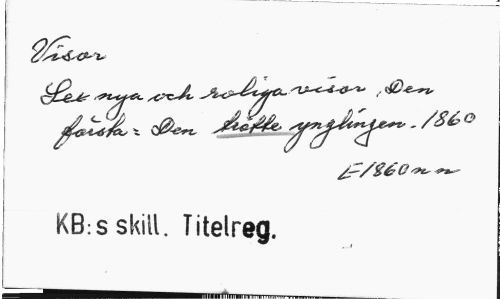 Visor
Sex nya och roliga visor, Den
första = Den trötte ynglingen. 1860
E1860nn
KB:s skill. Titelreg.